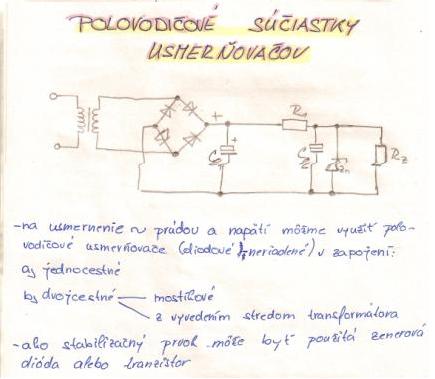 POLOVODIČOVÉ SÚČIASTKY
USMERŇOVAČOV
+
R₁
+
C₁
C₂
Zn
Rz
-na usmernenie ~ prúdou a napätí môžme využiť polo-
vodičové usmerňovače (diodové neriadené) v zapojení:
a) jednocestné
b) dvojcestné — mostíkové
z vyvedením stredom transformátora
-ako stabilizačný prvok môže byť použitá zenerová
dióda alebo tranzistor